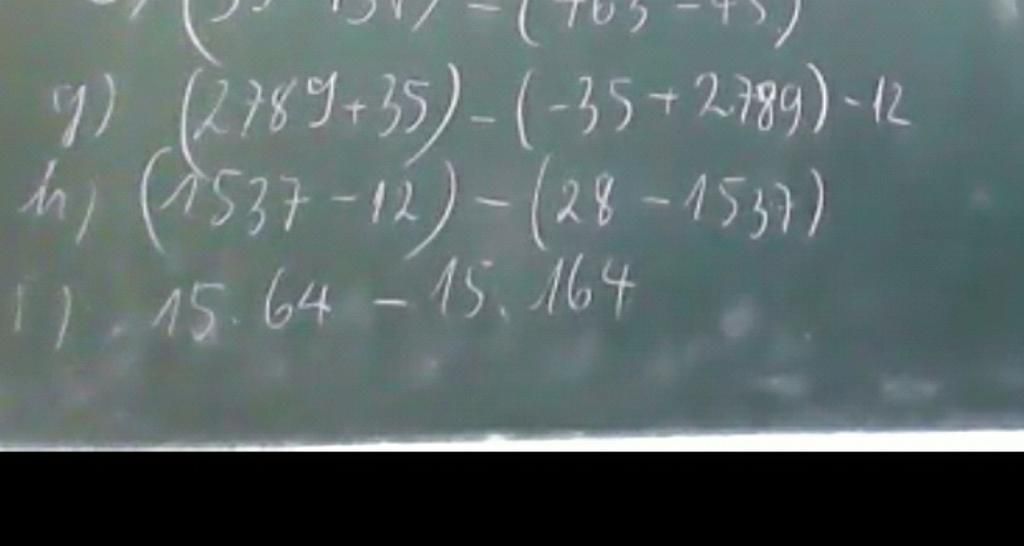 g) (2789+35) - (-35 + 2789) - 12
h) (1537 - 12) - (28 - 1537)
i) 15. 64 - 15. 164